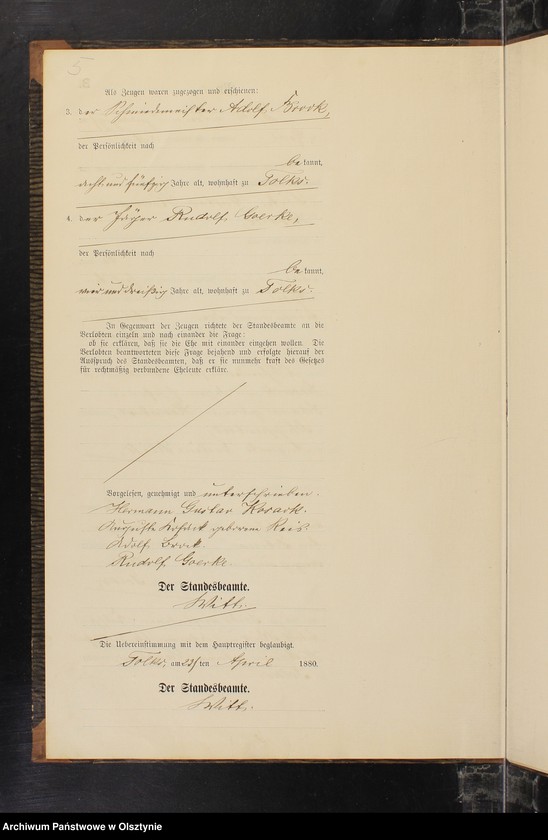 5
Als Zeugen waren zugezogen und erschienen:
3. der Schmiedemeister Adolf Brock,
der Persönlichkeit nach
bekannt,
acht und fünfzig Jahre alt, wohnhaft zu Tolks.
4. der Jäger Rudolf Goerke,
der Persönlichkeit nach
bekannt,
vier und dreißig Jahre alt, wohnhaft zu Tolks.
In Gegenwart der Zeugen richtete der Standesbeamte an die
Verlobten einzeln und nach einander die Frage:
ob sie erklären, daß sie die Ehe mit einander eingehen wollen. Die
Verlobten beantworteten diese Frage bejahend und erfolgte hierauf der
Ausspruch des Standesbeamten, daß er sie nunmehr kraft des Gesetzes
für rechtmäßig verbundene Eheleute erkläre.
Vorgelesen, genehmigt und unterschrieben.
Hermann Gustav
Auguste geborene Reis.
Adolf Brock.
Rudolf Goerke.
Der Standesbeamte.
Witt.
Die Uebereinstimmung mit dem Hauptregister beglaubigt.
Tolks, am 23ten April 1880.
Der Standesbeamte.
Witt.
Archiwum Państwowe w Olsztynie